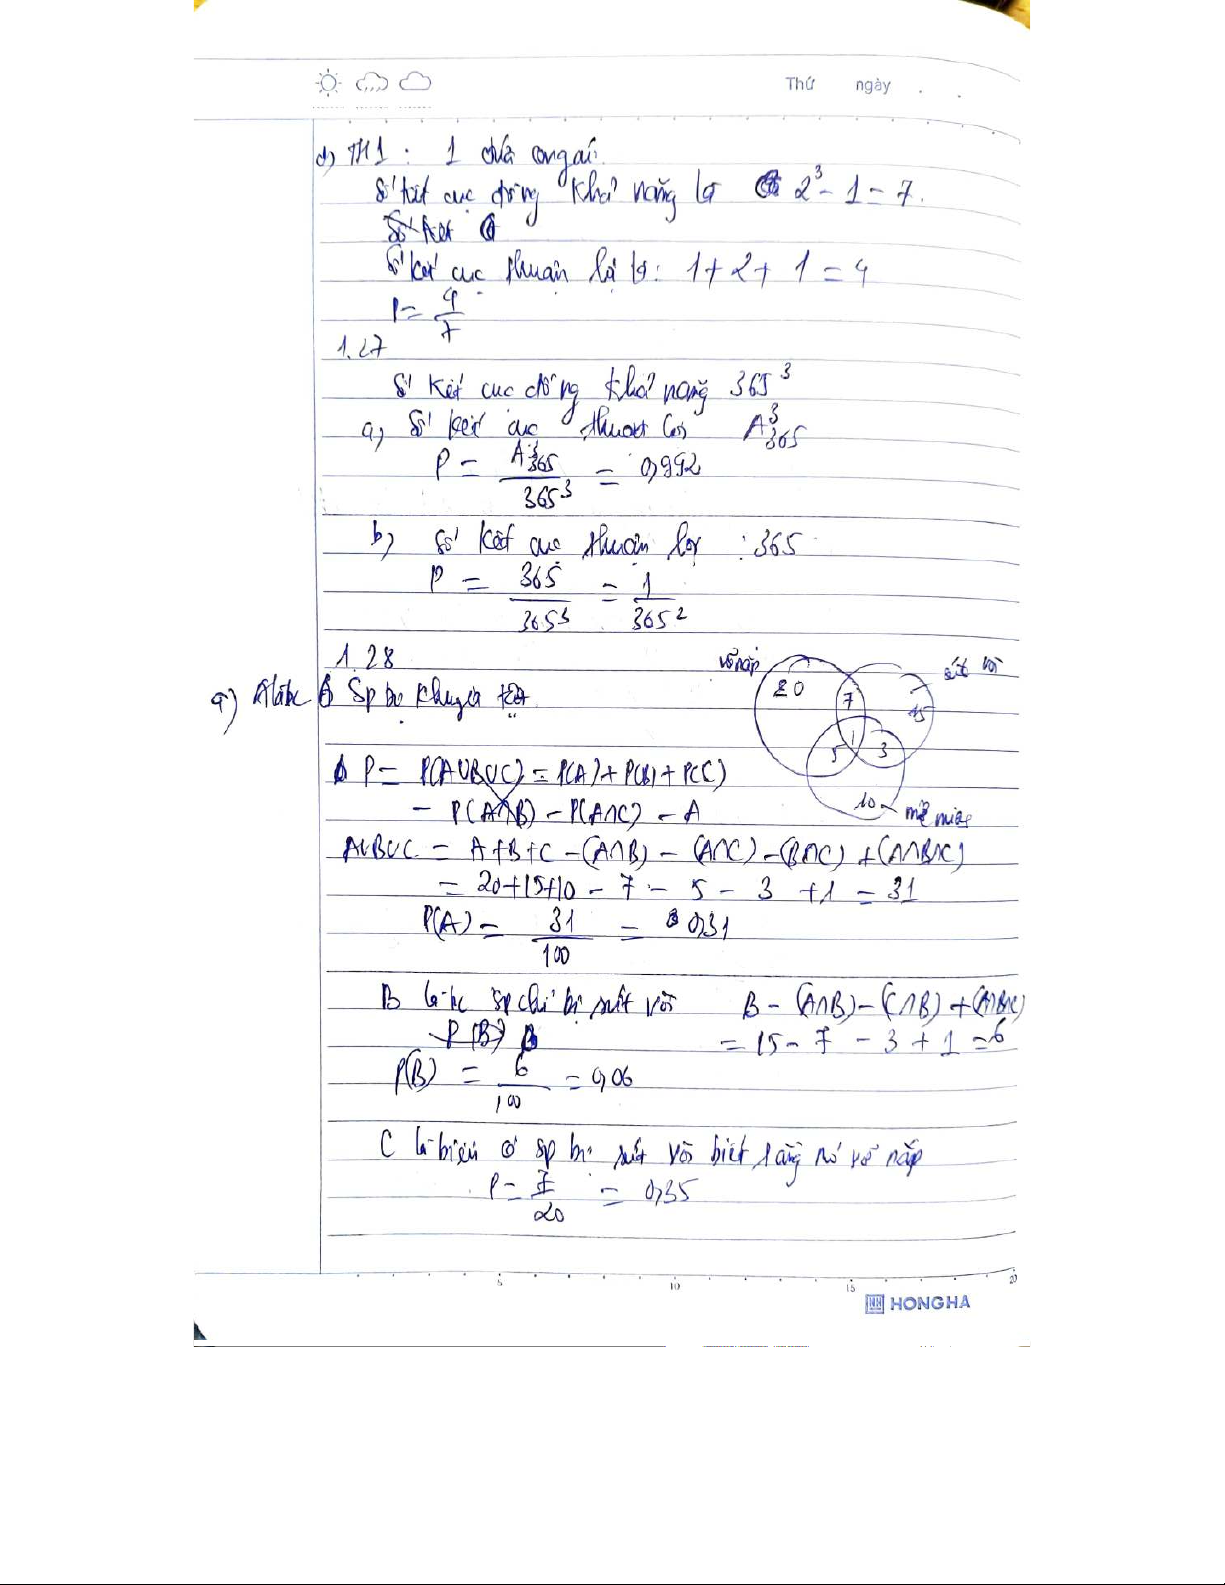 Thứ ngày
d) TH1 : 1 đứa con gái
Số kết cục đồng khả năng là 2³ - 1 = 7.
Số kết cục thuận lợi là: 1 + 2 + 1 = 4
P = 4/7
1.27
Số kết cục đồng khả năng 365³
a) Số kết cục thuận lợi A³₃₆₅
P = A³₃₆₅ / 365³ = 0,992
b) Số kết cục thuận lợi : 365
P = 365 / 365³ = 1 / 365²
1.28
vỡ nắp sứt vòi
20 7 15
1
5 3
10 mẻ miệng
a) A là bc sp bị khuyết tật
P = P(A∪B∪C) = P(A) + P(B) + P(C)
- P(A∩B) - P(A∩C) - A
A∪B∪C = A+B+C - (A∩B) - (A∩C) - (B∩C) + (A∩B∩C)
= 20+15+10 - 7 - 5 - 3 + 1 = 31
P(A) = 31/100 = 0,31
B là bc sp chỉ bị sứt vòi B - (A∩B) - (C∩B) + (A∩B∩C)
P(B) = 15 - 7 - 3 + 1 = 6
P(B) = 6/100 = 0,06
C là biến cố sp bị sứt vòi biết rằng nó vỡ nắp
P = 7/20 = 0,35
5 10 15 20
HONGHA